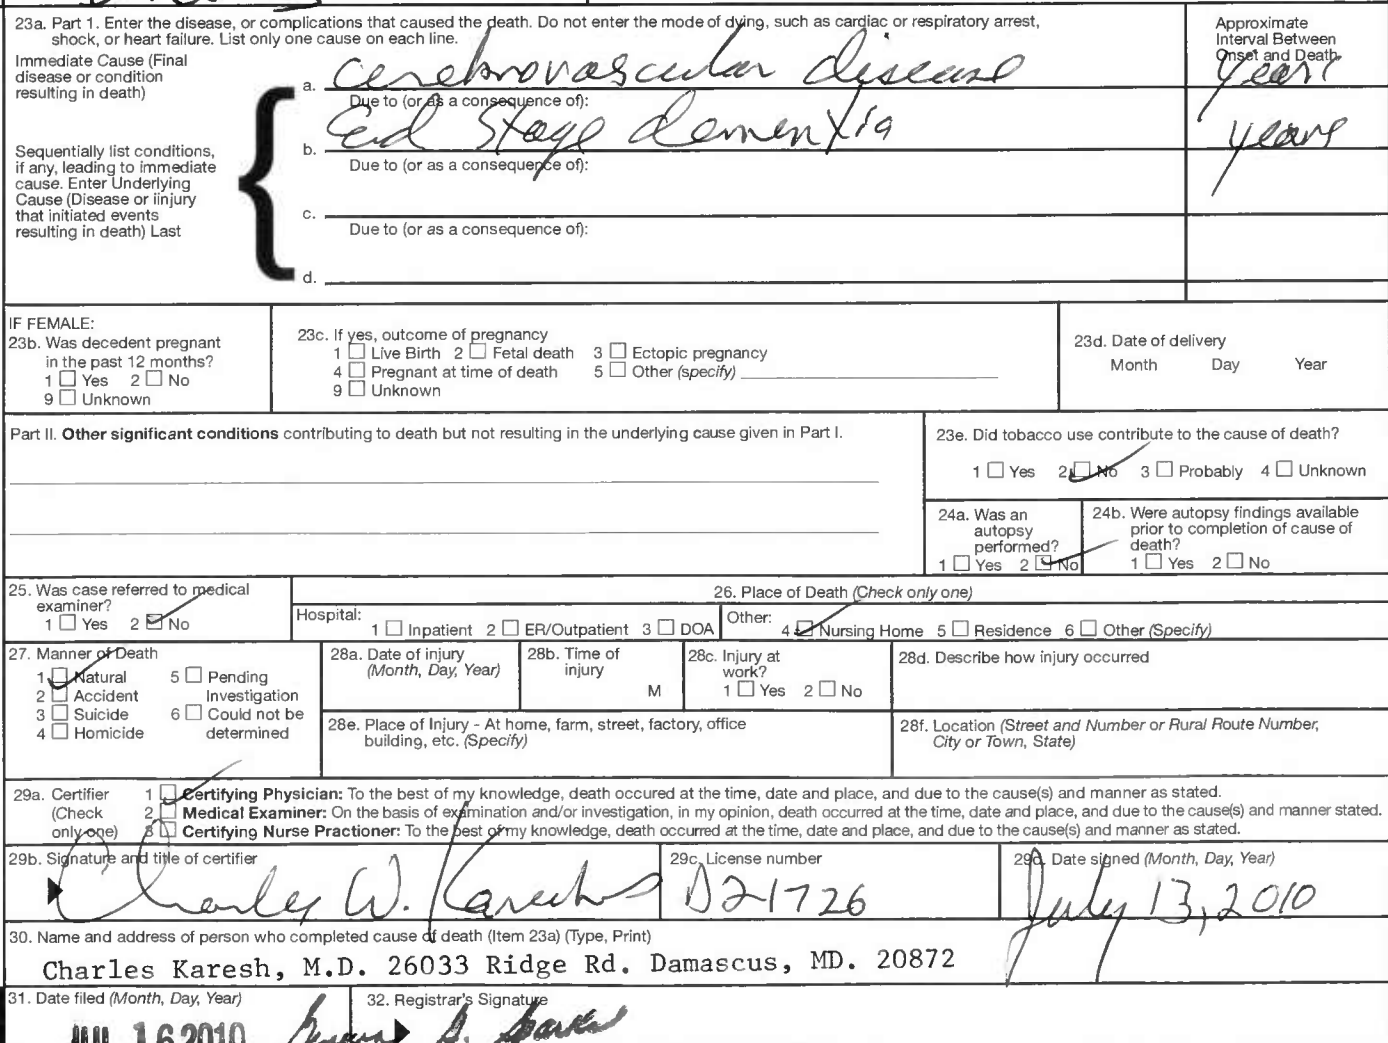 23a. Part 1. Enter the disease, or complications that caused the death. Do not enter the mode of dying, such as cardiac or respiratory arrest,
shock, or heart failure. List only one cause on each line.
Approximate
Interval Between
Onset and Death
Immediate Cause (Final
disease or condition
resulting in death)
a. cerebrovascular disease years
Due to (or as a consequence of):
b. End Stage dementia years
Due to (or as a consequence of):
Sequentially list conditions,
if any, leading to immediate
cause. Enter Underlying
Cause (Disease or iinjury
that initiated events
resulting in death) Last
c.
Due to (or as a consequence of):
d.
IF FEMALE:
23b. Was decedent pregnant
in the past 12 months?
1 ☐ Yes 2 ☐ No
9 ☐ Unknown
23c. If yes, outcome of pregnancy
1 ☐ Live Birth 2 ☐ Fetal death 3 ☐ Ectopic pregnancy
4 ☐ Pregnant at time of death 5 ☐ Other (specify)
9 ☐ Unknown
23d. Date of delivery
Month Day Year
Part II. Other significant conditions contributing to death but not resulting in the underlying cause given in Part I.
23e. Did tobacco use contribute to the cause of death?
1 ☐ Yes 2 ☑ No 3 ☐ Probably 4 ☐ Unknown
24a. Was an
autopsy
performed?
1 ☐ Yes 2 ☑ No
24b. Were autopsy findings available
prior to completion of cause of
death?
1 ☐ Yes 2 ☐ No
25. Was case referred to medical
examiner?
1 ☐ Yes 2 ☑ No
26. Place of Death (Check only one)
Hospital: 1 ☐ Inpatient 2 ☐ ER/Outpatient 3 ☐ DOA
Other: 4 ☑ Nursing Home 5 ☐ Residence 6 ☐ Other (Specify)
27. Manner of Death
1 ☑ Natural 5 ☐ Pending
2 ☐ Accident Investigation
3 ☐ Suicide 6 ☐ Could not be
4 ☐ Homicide determined
28a. Date of injury
(Month, Day, Year)
28b. Time of
injury
M
28c. Injury at
work?
1 ☐ Yes 2 ☐ No
28d. Describe how injury occurred
28e. Place of Injury - At home, farm, street, factory, office
building, etc. (Specify)
28f. Location (Street and Number or Rural Route Number,
City or Town, State)
29a. Certifier
(Check
only one)
1 ☑ Certifying Physician: To the best of my knowledge, death occured at the time, date and place, and due to the cause(s) and manner as stated.
2 ☐ Medical Examiner: On the basis of examination and/or investigation, in my opinion, death occurred at the time, date and place, and due to the cause(s) and manner stated.
3 ☐ Certifying Nurse Practioner: To the best of my knowledge, death occurred at the time, date and place, and due to the cause(s) and manner as stated.
29b. Signature and title of certifier
Charles W. Karesh
29c. License number
D21726
29d. Date signed (Month, Day, Year)
July 13, 2010
30. Name and address of person who completed cause of death (Item 23a) (Type, Print)
Charles Karesh, M.D. 26033 Ridge Rd. Damascus, MD. 20872
31. Date filed (Month, Day, Year)
16 2010
32. Registrar's Signature